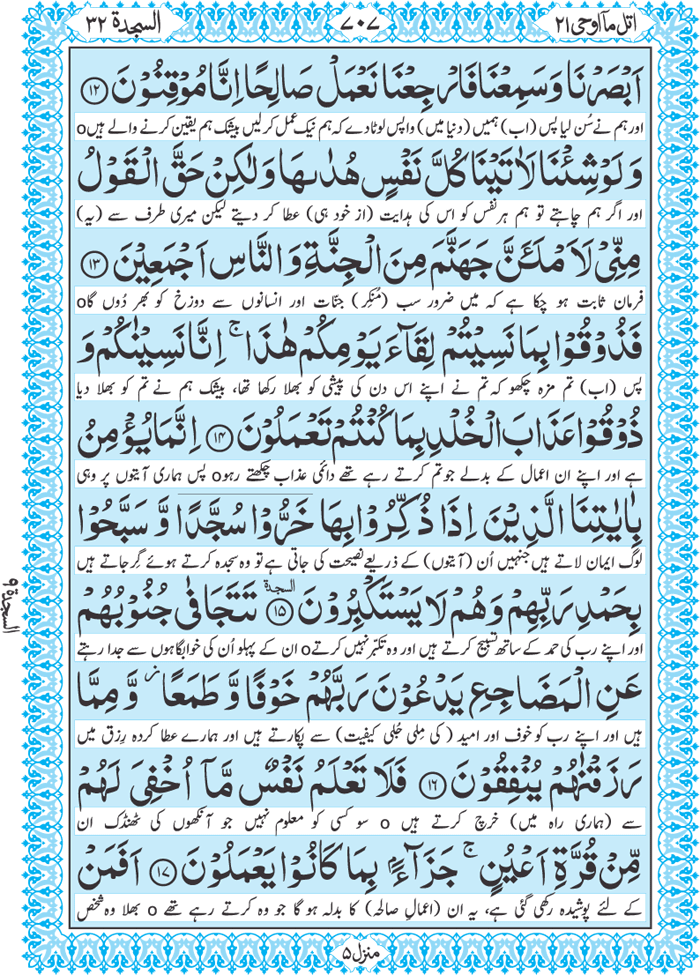 اتل ماۤ اوحی ۲۱
۷۰۷
السجدۃ ۳۲
اَبْصَرْنَا وَسَمِعْنَا فَارْجِعْنَا نَعْمَلْ صَالِحًا اِنَّا مُوْقِنُوْنَ ۝۱۲
اور ہم نے سُن لیا پس (اب) ہمیں (دنیا میں) واپس لوٹا دے کہ ہم نیک عمل کر لیں بیشک ہم یقین کرنے والے ہیںo
وَ لَوْ شِئْنَا لَاٰتَیْنَا كُلَّ نَفْسٍ هُدٰىهَا وَلٰكِنْ حَقَّ الْقَوْلُ
اور اگر ہم چاہتے تو ہم ہر نفس کو اس کی ہدایت (از خود ہی) عطا کر دیتے لیکن میری طرف سے (یہ)
مِنِّیْ لَاَمْلَـَٔنَّ جَهَنَّمَ مِنَ الْجِنَّةِ وَ النَّاسِ اَجْمَعِیْنَ ۝۱۳
فرمان ثابت ہو چکا ہے کہ میں ضرور سب (مُنکِر) جنّات اور انسانوں سے دوزخ کو بھر دُوں گاo
فَذُوْقُوْا بِمَا نَسِیْتُمْ لِقَآءَ یَوْمِكُمْ هٰذَا ۚ اِنَّا نَسِیْنٰكُمْ وَ
پس (اب) تم مزہ چکھو کہ تم نے اپنے اس دن کی پیشی کو بھلا رکھا تھا، بیشک ہم نے تم کو بھلا دیا
ذُوْقُوْا عَذَابَ الْخُلْدِ بِمَا كُنْتُمْ تَعْمَلُوْنَ ۝۱۴ اِنَّمَا یُؤْمِنُ
ہے اور اپنے ان اعمال کے بدلے جو تم کرتے رہے تھے دائمی عذاب چکھتے رہوo پس ہماری آیتوں پر وہی
بِاٰیٰتِنَا الَّذِیْنَ اِذَا ذُكِّرُوْا بِهَا خَرُّوْا سُجَّدًا وَّ سَبَّحُوْا
لوگ ایمان لاتے ہیں جنہیں اُن (آیتوں) کے ذریعے نصیحت کی جاتی ہے تو وہ سجدہ کرتے ہوئے گِر جاتے ہیں
بِحَمْدِ رَبِّهِمْ وَهُمْ لَا یَسْتَكْبِرُوْنَ ۝۱۵ السجدة تَتَجَافٰی جُنُوْبُهُمْ
اور اپنے رب کی حمد کے ساتھ تسبیح کرتے ہیں اور وہ تکبّر نہیں کرتےo ان کے پہلو اُن کی خوابگاہوں سے جدا رہتے
السجدۃ ۹
عَنِ الْمَضَاجِعِ یَدْعُوْنَ رَبَّهُمْ خَوْفًا وَّ طَمَعًا ؗ وَّ مِمَّا
ہیں اور اپنے رب کو خوف اور امید (کی مِلی جُلی کیفیت) سے پکارتے ہیں اور ہمارے عطا کردہ رِزق میں
رَزَقْنٰهُمْ یُنْفِقُوْنَ ۝۱۶ فَلَا تَعْلَمُ نَفْسٌ مَّاۤ اُخْفِیَ لَهُمْ
سے (ہماری راہ میں) خرچ کرتے ہیں o سو کسی کو معلوم نہیں جو آنکھوں کی ٹھنڈک ان
مِّنْ قُرَّةِ اَعْیُنٍ ۚ جَزَآءًۢ بِمَا كَانُوْا یَعْمَلُوْنَ ۝۱۷ اَفَمَنْ
کے لئے پوشیدہ رکھی گئی ہے، یہ ان (اعمالِ صالحہ) کا بدلہ ہو گا جو وہ کرتے رہے تھے o بھلا وہ شخص
منزل ۵